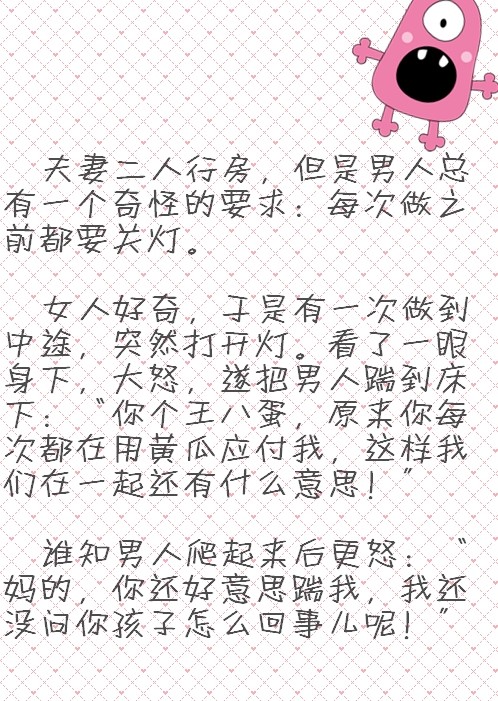 夫妻二人行房，但是男人总
有一个奇怪的要求：每次做之
前都要关灯。
女人好奇，于是有一次做到
中途，突然打开灯。看了一眼
身下，大怒，遂把男人踹到床
下：〝你个王八蛋，原来你每
次都在用黄瓜应付我，这样我
们在一起还有什么意思！〞
谁知男人爬起来后更怒：〝
妈的，你还好意思踹我，我还
没问你孩子怎么回事儿呢！〞